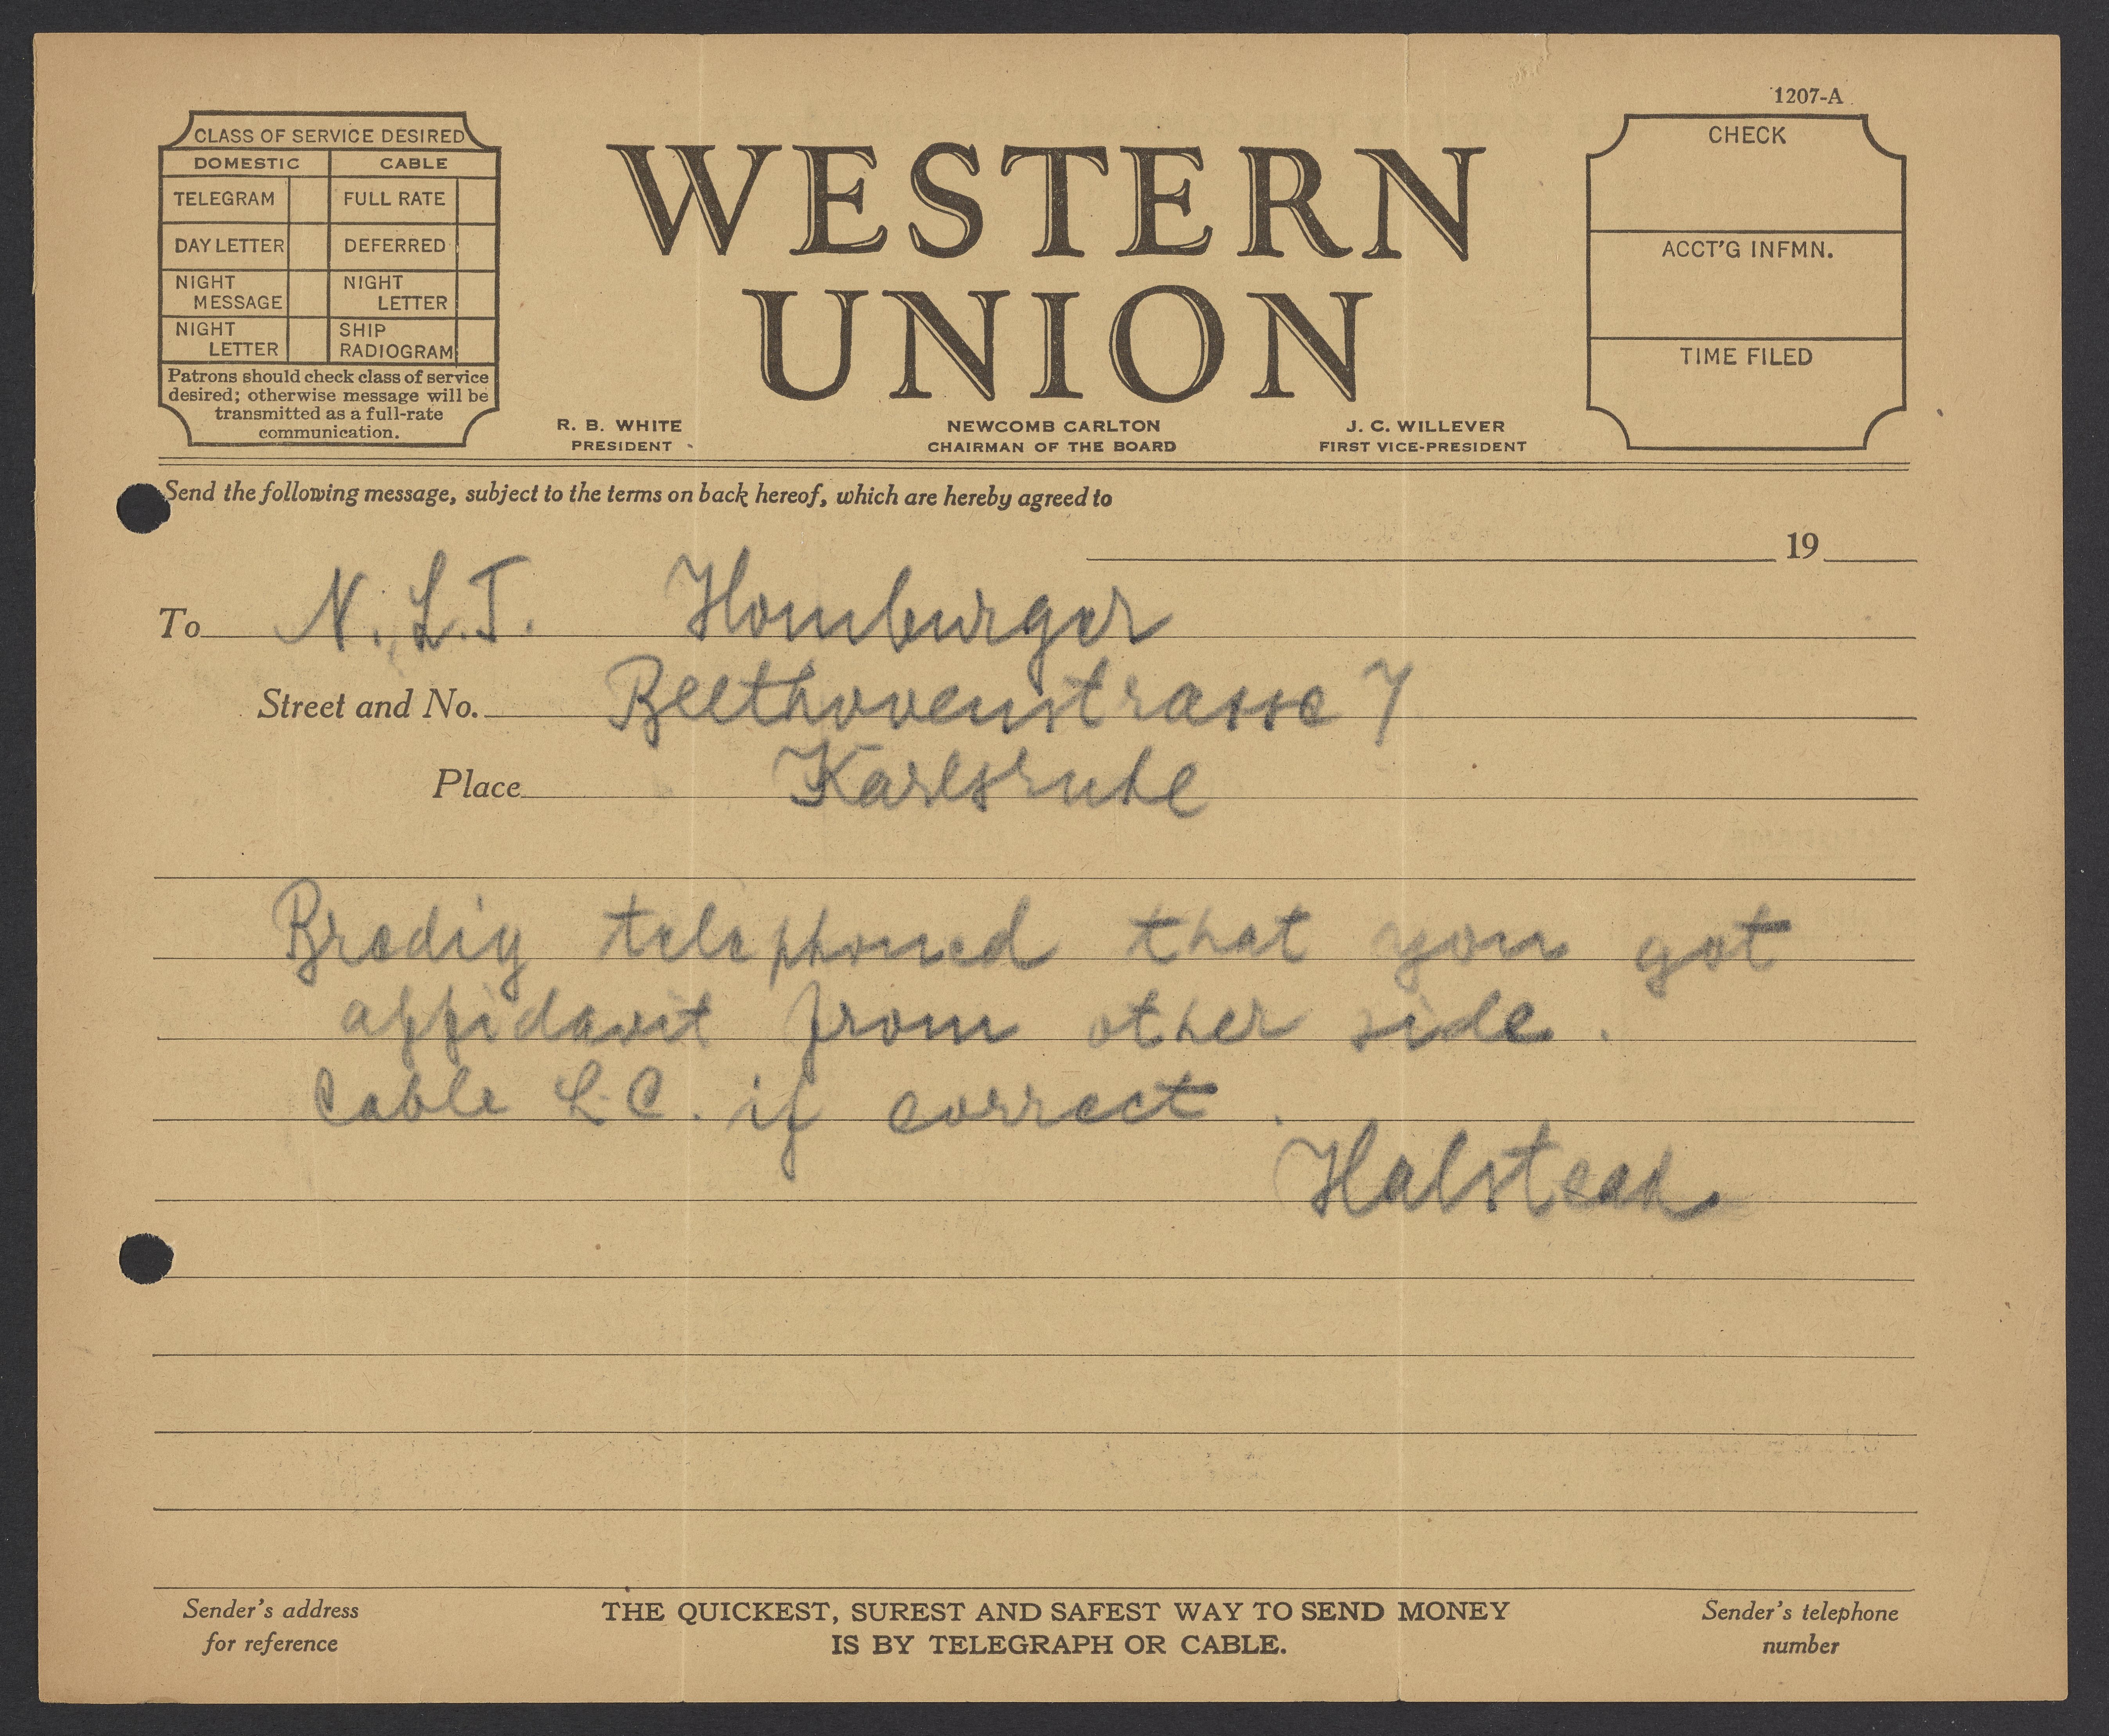 1207-A
CLASS OF SERVICE DESIRED
DOMESTIC CABLE
TELEGRAM FULL RATE
DAY LETTER DEFERRED
NIGHT MESSAGE NIGHT LETTER
NIGHT LETTER SHIP RADIOGRAM
Patrons should check class of service
desired; otherwise message will be
transmitted as a full-rate
communication.
WESTERN
UNION
R. B. WHITE
PRESIDENT
NEWCOMB CARLTON
CHAIRMAN OF THE BOARD
J. C. WILLEVER
FIRST VICE-PRESIDENT
CHECK
ACCT'G INFMN.
TIME FILED
Send the following message, subject to the terms on back hereof, which are hereby agreed to
19
To N. L.T. Homburger
Street and No. Beethovenstrasse 7
Place Karlsruhe
Bredig telephoned that you got
affidavit from other side.
Cable L.C. if correct.
Halstead
Sender's address
for reference
THE QUICKEST, SUREST AND SAFEST WAY TO SEND MONEY
IS BY TELEGRAPH OR CABLE.
Sender's telephone
number